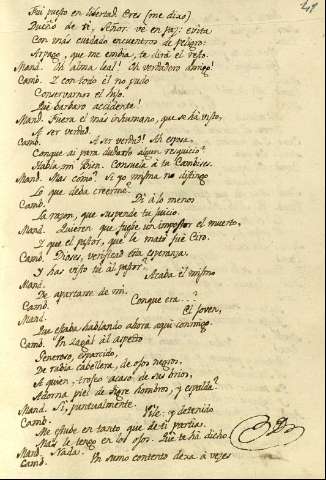 Fui puesto en libertad. Eres (me dixo)
Dueño de ti, Señor: vé en paz: evita
Con más cuidado encuentros de peligro:
Arpago, que me embia, te dirá el resto.
Mand. Oh alma leal! Oh verdadero Amigo!
Camb. Y con todo él no pudo
Conservarnos el hijo.
Mand. Qué bárbaro accidente!
Fuera el más inhumano, que se há visto,
A ser verdad.
Camb. A ser verdad! Ah esposa,
Conque ai para dudarlo algun resquicio?
Habla mi Bien. Consuela á tu Cambises.
Mand. Mas cómo? Si yo misma no distingo
Lo que deba creerme?
Camb. Di á lo menos
La razon, que suspende tu juicio.
Mand. Quieren que fuese un impostor el muerto,
Y que el pastor, que le mató fue Ciro.
Camb. Dioses, verificad esta esperanza.
Y has visto tú al pastor?
Mand. Acaba él mismo
De apartarse de mi.
Camb. Conque era . . :
Mand. El joven,
Que estaba hablando ahora aquí conmigo.
Camb. Un zagal al aspecto
Generoso, esparcido,
De rubia cabellera, de ojos negros,
A quien, trofeo acaso de sus brios,
Adorna piel de tigre hombros, y espalda?
Mand. Si, puntualmente.
Camb. Vile: y detenido
Me estube en tanto que de ti partia.
Mas le tengo en los ojos. Qué te há dicho?
Mand. Nada.
Camb. Un sumo contento dexa á vezes